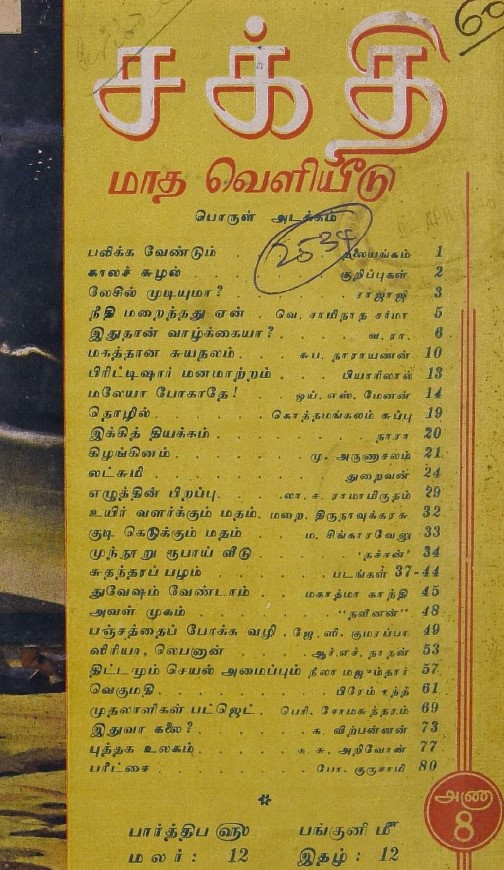 60
சக்தி
மாத வெளியீடு
பொருள் அடக்கம்
2534
பலிக்க வேண்டும் . . . தலையங்கம் 1
காலச் சுழல் . . . குறிப்புகள் 2
லேசில் முடியுமா? . . . ராஜாஜி 3
நீதி மறைந்தது ஏன் . வெ. சாமிநாத சர்மா 5
இதுதான் வாழ்க்கையா? . . . வ. ரா. 6
மகத்தான சுயநலம் . . . சுப. நாராயணன் 10
பிரிட்டிஷார் மனமாற்றம் . . . பியாரிலால் 13
மலேயா போகாதே! . . . ஒய். எஸ். மேனன் 14
தொழில் . . . கொத்தமங்கலம் சுப்பு 19
இக்கித் தியக்கம் . . . நாரா 20
கிழங்கினம் . . . மு. அருணாசலம் 21
லட்சுமி . . . துறைவன் 24
எழுத்தின் பிறப்பு . . . லா. ச. ராமாமிருதம் 29
உயிர் வளர்க்கும் மதம். மறை. திருநாவுக்கரசு 32
குடி கெடுக்கும் மதம் . . . ம. சிங்காரவேலு 33
முந்நூறு ரூபாய் வீடு . . . 'நச்சன்' 34
சுதந்தரப் பழம் . . . படங்கள் 37-44
துவேஷம் வேண்டாம் . . . மகாத்மா காந்தி 45
அவள் முகம் . . . "நவீனன்" 48
பஞ்சத்தைப் போக்க வழி . ஜே. ஸி. குமரப்பா 49
ஸிரியா, லெபனான் . . . ஆர். எச். நாதன் 53
திட்டமும் செயல் அமைப்பும் நீலா மஜும்தார் 57
வெகுமதி . . . பிரேம் சந்த் 61
முதலாளிகள் பட்ஜெட் . பெரி. சோமசுந்தரம் 69
இதுவா கலை? . . . க. விற்பன்னன் 73
புத்தக உலகம் . . . சு. சு. அறிவோன் 77
பரீட்சை . . . போ. குருசாமி 80
அணா
8
பார்த்திப ௵ பங்குனி ௴
மலர் : 12 இதழ் : 12